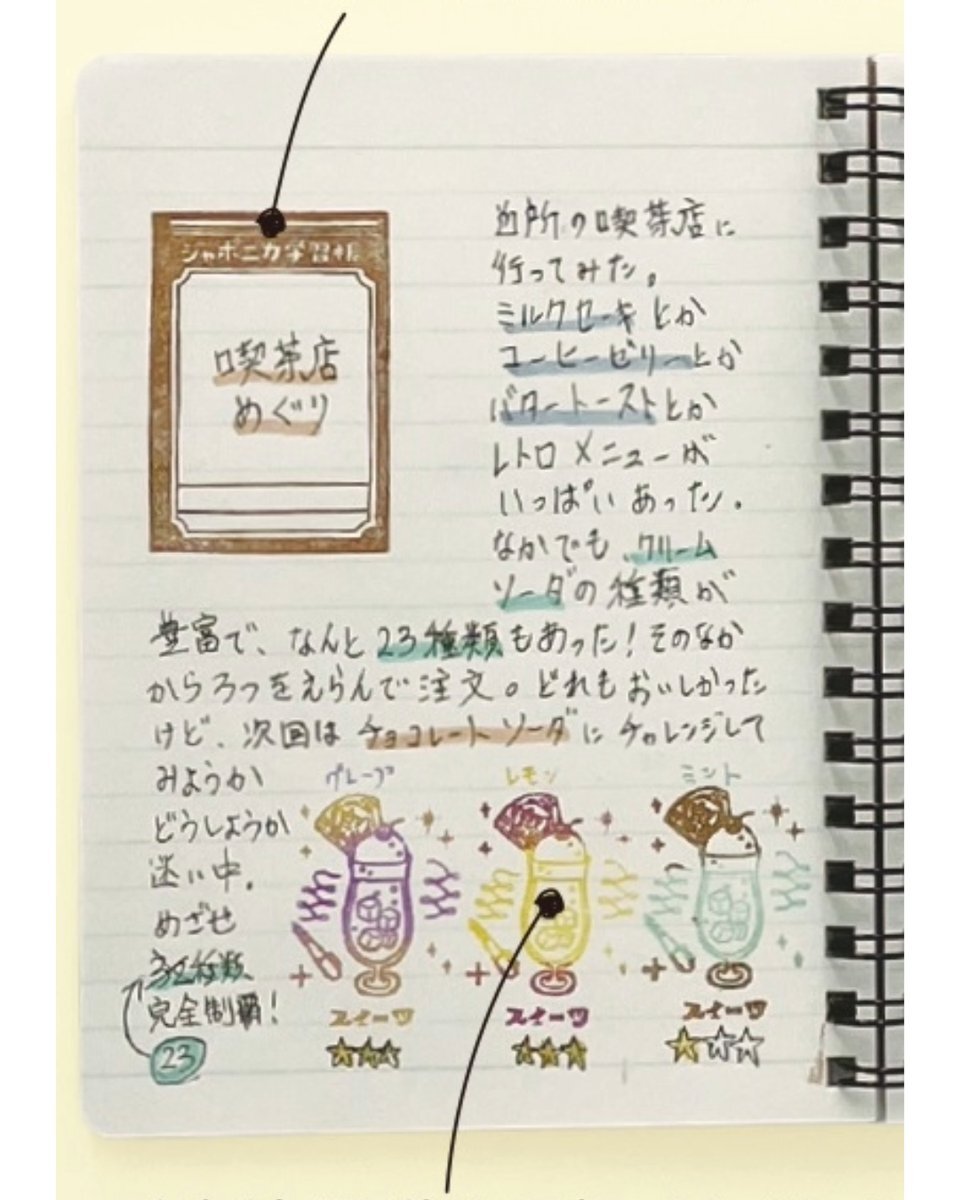 ジャポニカ学習帳
喫茶店
めぐり
近所の喫茶店に
行ってみた。
ミルクセーキとか
コーヒーゼリーとか
バタートーストとか
レトロメニューが
いっぱいあった。
なかでもクリーム
ソーダの種類が
豊富で、なんと23種類もあった!そのなか
から3つをえらんで注文。どれもおいしかった
けど、次回はチョコレートソーダにチャレンジして
みようか
どうしようか
迷い中。
めざせ
種類
完全制覇!
23
グレープ
レモン
ミント
スイーツ
スイーツ
スイーツ